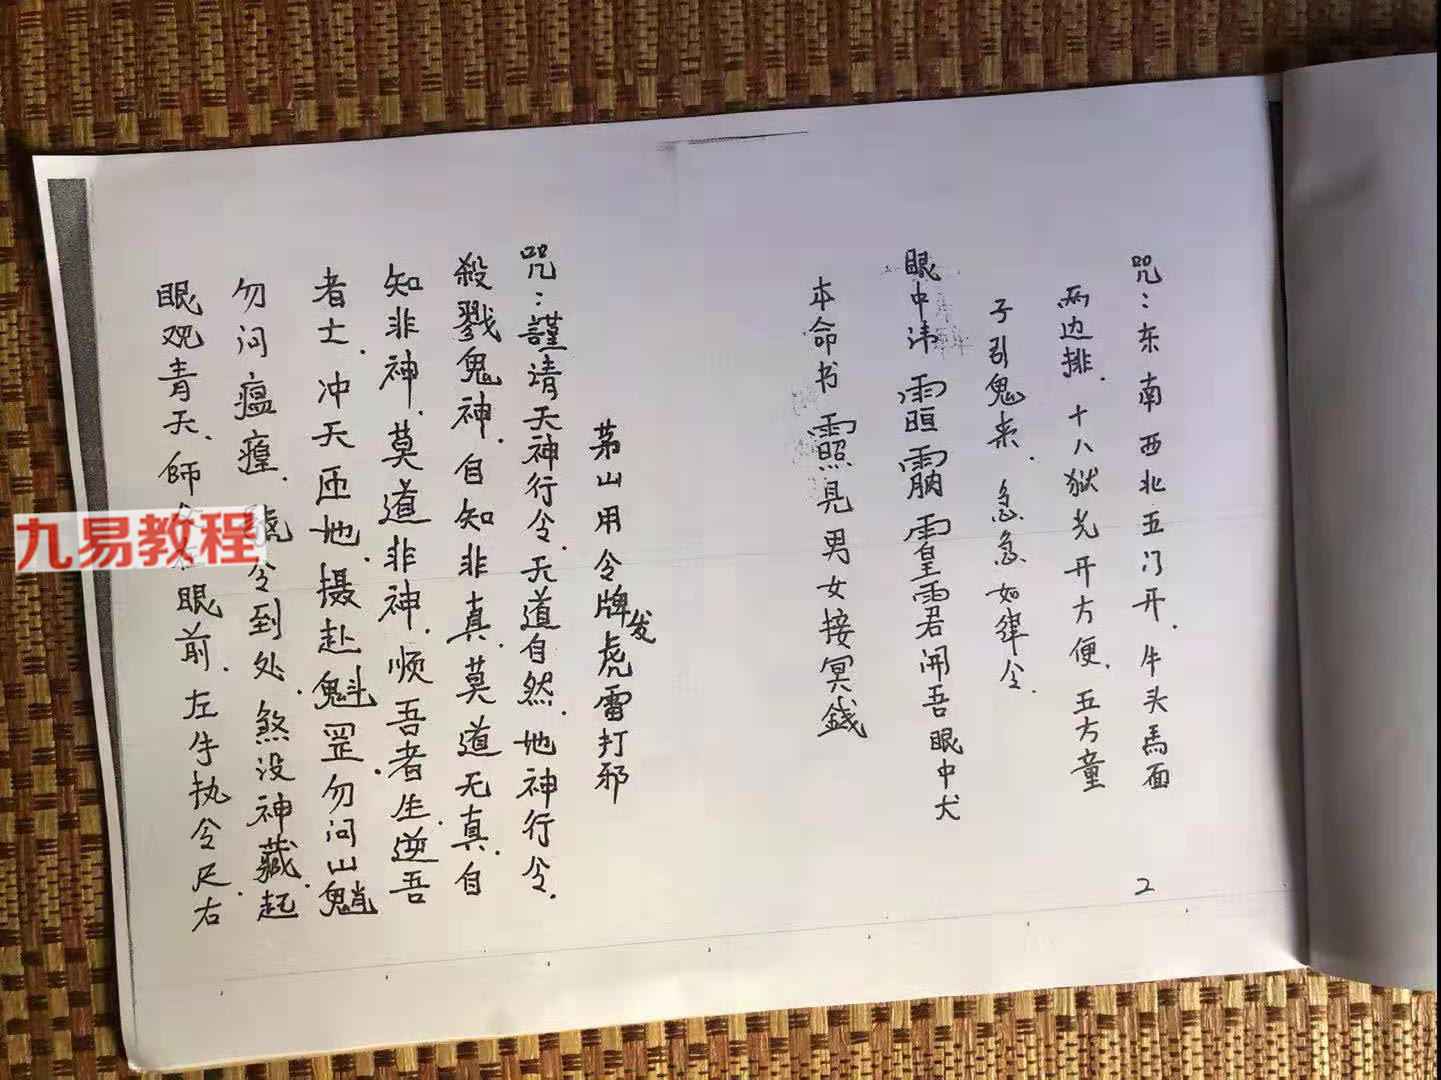 咒：东南西北五门开．牛头馬面
两边排．十八狱光开方便．五方童
子引鬼来．急急如律令．
眼中讳 君開吾眼中犬
本命书 見男女接冥錢
2
茅山用令牌发虎雷打邪
咒：謹请天神行令．天道自然．地神行令．
殺戮鬼神．自知非真．莫道无真．自
知非神．莫道非神．顺吾者生．逆吾
者士．冲天压地．摄赴魁罡．勿问山魈
勿问瘟瘟．令到处．煞没神藏．起
眼观青天．師 眼前．左手执令尺．右
九易教程